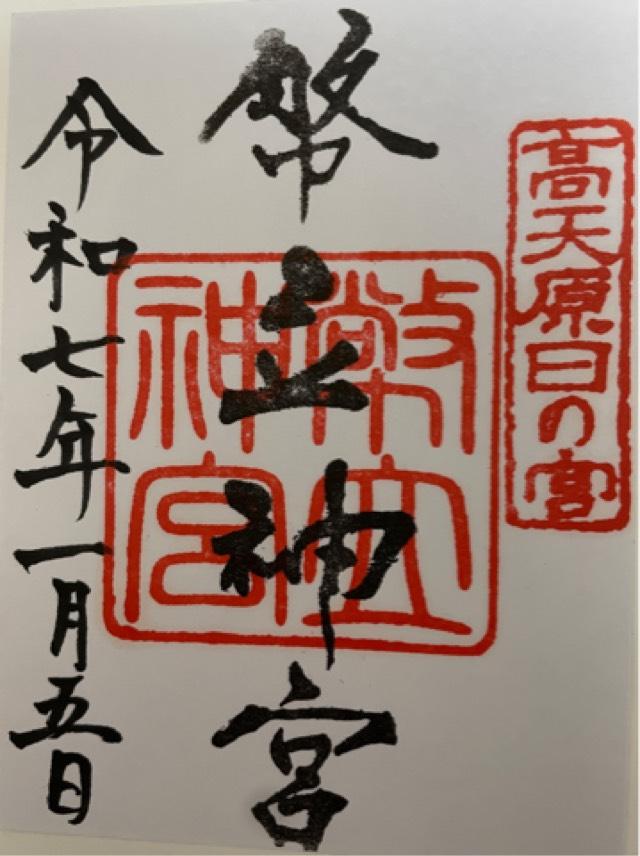 高天原日の宮
幣立神宮
幣立神宮
令和七年一月五日